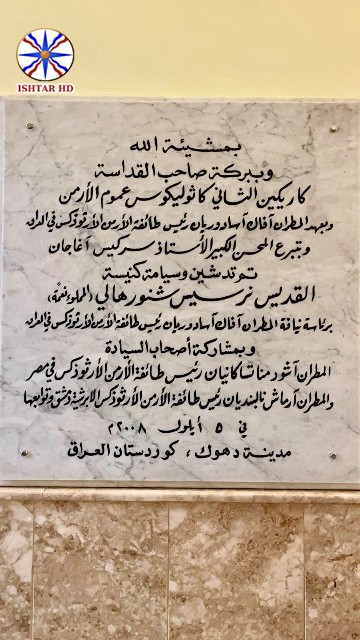 ISHTAR HD
بمشيئة الله
وببركة صاحب القداسة
كاريكين الثاني كاثوليكوس عموم الأرمن
وبعهد المطران آفاك أسادوريان رئيس طائفة الأرمن الأرثوذكس في العراق
وبتبرع المحسن الكبير الأستاذ سركيس آغاجان
تم تدشين وسيامة كنيسة
القديس نرسيس شنورهالي (المملوء نعمة)
برئاسة نيافة المطران آفاك أسادوريان رئيس طائفة الأرمن الأرثوذكس في العراق
وبمشاركة أصحاب السيادة
المطران آشود مناتساكانيان رئيس طائفة الأرمن الأرثوذكس في مصر
والمطران أرماش نالبنديان رئيس طائفة الأرمن الأرثوذكس لأبرشية دمشق وتوابعها
في ٥ أيلول ٢٠٠٨م
مدينة دهوك ، كوردستان العراق